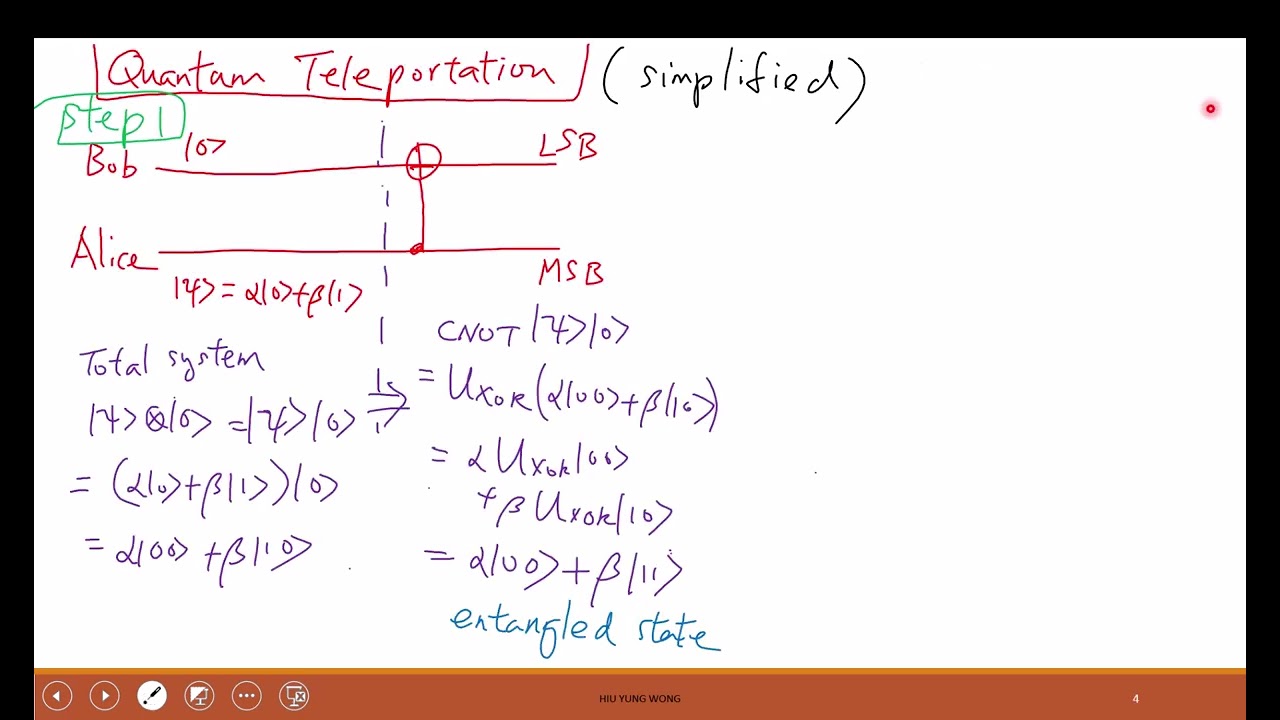 Quantam Teleportation (simplified)
step 1
Bob |0> LSB
Alice MSB
|ψ> = α|0>+β|1>
Total system
|ψ>⊗|0> = |ψ>|0>
= (α|0>+β|1>)|0>
= α|00> + β|10>
CNOT |ψ>|0>
= UXOR(α|00>+β|10>)
= α UXOR|00>
+β UXOR|10>
= α|00> + β|11>
entangled state
HIU YUNG WONG
4